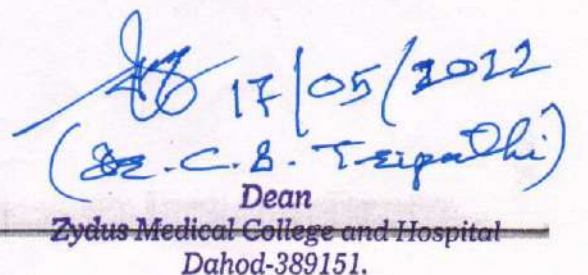 17/05/2022
(Dr. C. B. Tripathi)
Dean
Zydus Medical College and Hospital
Dahod-389151.